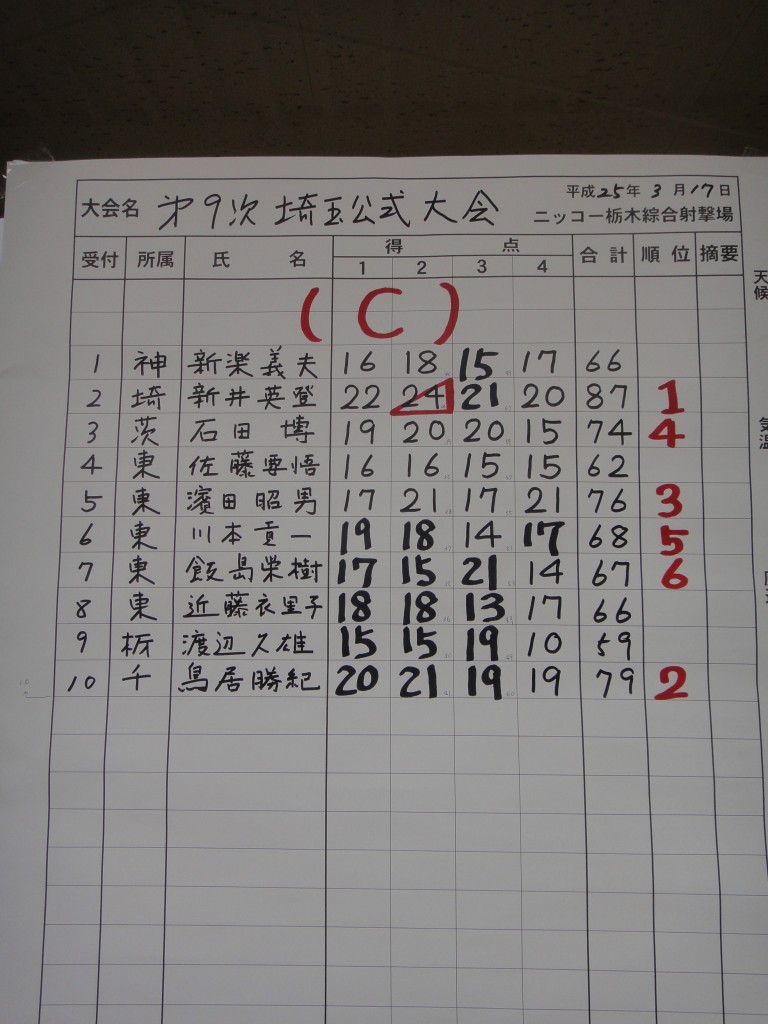 大会名 第9次 埼玉公式大会 平成25年 3月17日
ニッコー栃木綜合射撃場
受付 所属 氏名 得点 合計 順位 摘要
1 2 3 4
(C)
1 神 新楽義夫 16 18 15 17 66
2 埼 新井英登 22 24 21 20 87 1
3 茨 石田博 19 20 20 15 74 4
4 東 佐藤要悟 16 16 15 15 62
5 東 濱田昭男 17 21 17 21 76 3
6 東 川本貢一 19 18 14 17 68 5
7 東 飯島栄樹 17 15 21 14 67 6
8 東 近藤衣里子 18 18 13 17 66
9 栃 渡辺久雄 15 15 19 10 59
10 千 鳥居勝紀 20 21 19 19 79 2
天候
気温